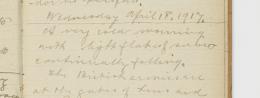 Wednesday April 18, 1917.
A very cold morning
with light flakes of snow
continually falling.
The British armies are
at the gates of Lens and